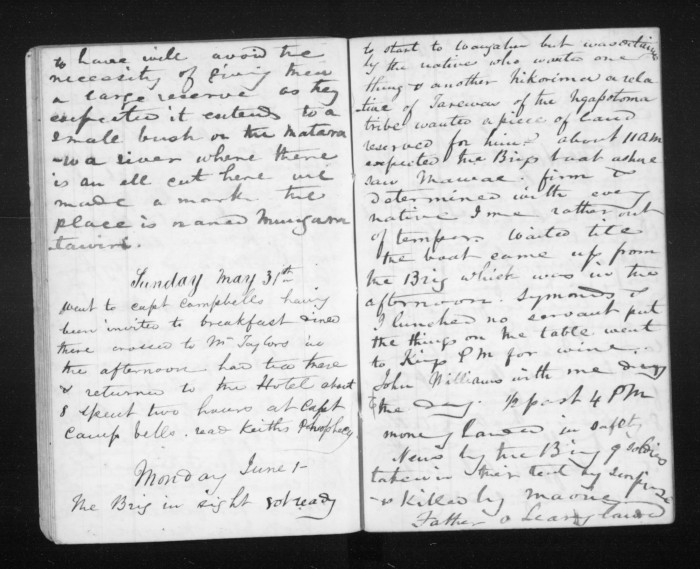 to have will avoid the
necessity of giving them
a large reserve as they
expected it extends to a
small bush on the Matara
-wa a river where there
is an ell cut here we
made a mark the
place is named Mungara
tawiri.
Sunday May 31th
went to capt Campbells having
been invited to breakfast dined
there crossed to Mr Taylors in
the afternoon had tea there
& returned to the Hotel about
8 spent two hours at Capt
Campbells. read Keiths Prophecy
Monday June 1-
The Brig in sight got ready
to start to Wangahu but was
by the native who wanted one
thing & another Hikorima a rela
tive of Tarewas of the Ngapotoma
tribe wanted a piece of land
reserved for him. about 11 am
expected the Brigs boat ashore
saw Mawae firm &
determined with every
native I me rather out
of temper. Waited till
the boat came up from
the Brig which was in the
afternoon. Symonds &
I lunched no servant put
the things on the table went
to Kings P M for wine.
John Williams with me
the day. ½ past 4 PM
money landed in safety
News by the Brig 9 soldiers
taken in their tent by surprise
& killed by maories
Father O